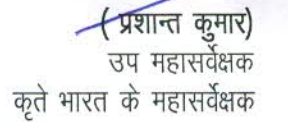 ( प्रशान्त कुमार)
उप महासर्वेक्षक
कृते भारत के महासर्वेक्षक